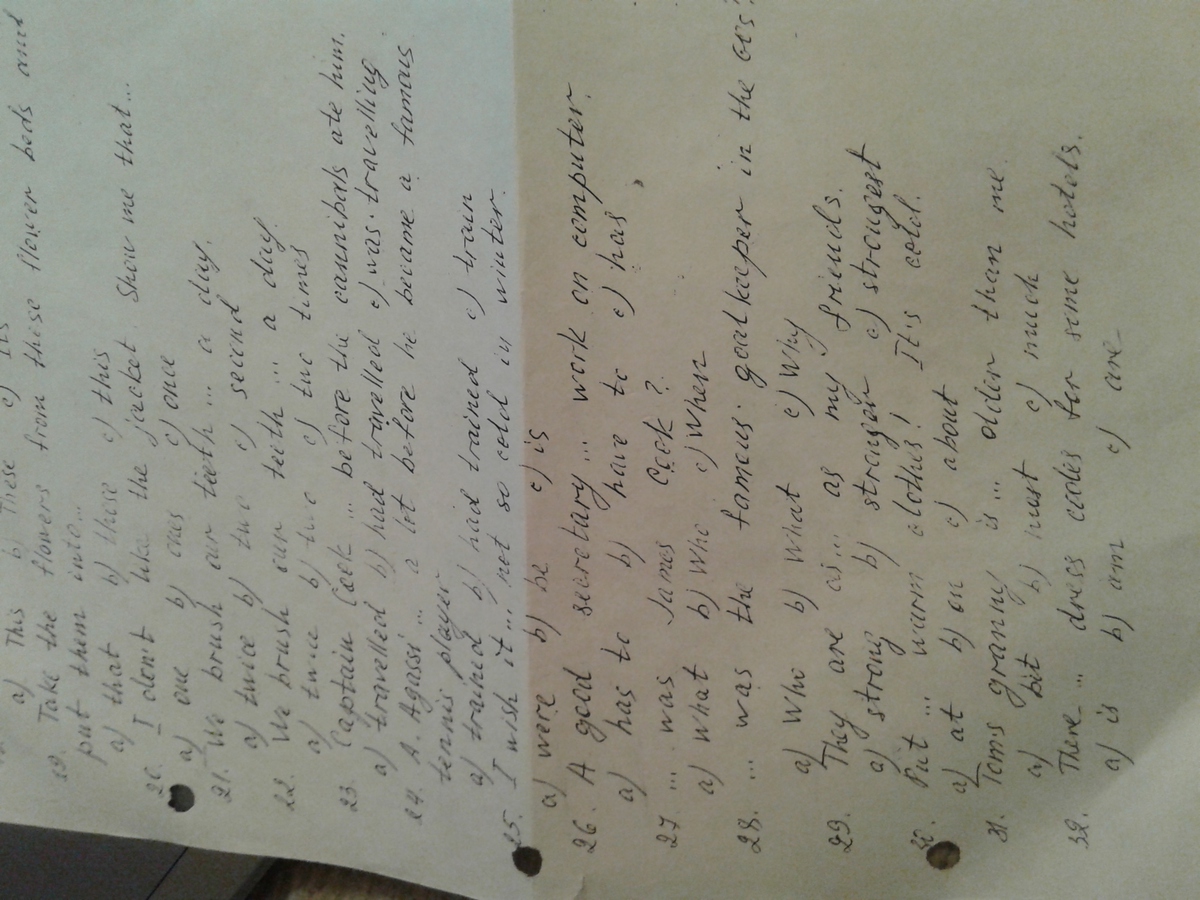 a) This b) These c) Its
19. Take the flowers from these flower beds and
put them into...
a) that b) those c) this
20. I don't like the jacket. Show me that...
a) one b) ones c) once
21. We brush our teeth ... a day.
a) twice b) two c) second
22. We brush our teeth ... a day.
a) twice b) two c) two times
23. Captain Cook ... before the cannibals ate him.
a) travelled b) had travelled c) was travelling
24. A Agassi ... a lot before he became a famous
tennis player
a) trained b) had trained c) train
25. I wish it ... not so cold in winter.
a) were b) be c) is
26. A good secretary ... work on computer.
a) has to b) have to c) has
27. ... was James Cook?
a) what b) who c) when
28. ... was the famous goalkeeper in the 60s?
a) Who b) what c) Why
29. They are as ... as my friends.
a) strong b) stronger c) strongest
30. Put ... warm clothes! It's cold.
a) at b) on c) about
31. Toms granny is ... older than me.
a) bit b) most c) much
32. There ... dress codes for some hotels.
a) is b) am c) are